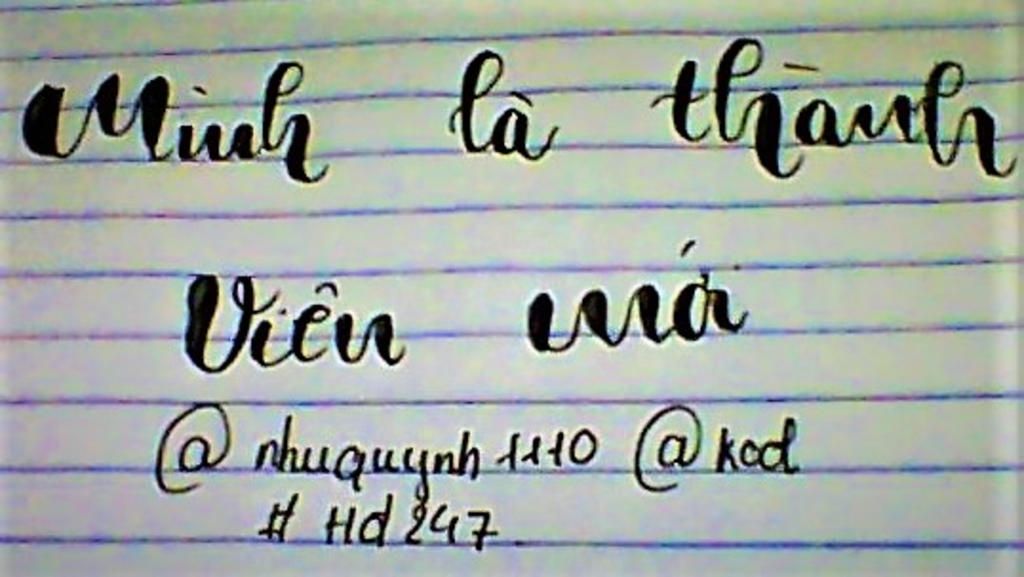 Mình là thành
Viên mới
@nhuquynh1110 @kod
# Hd247